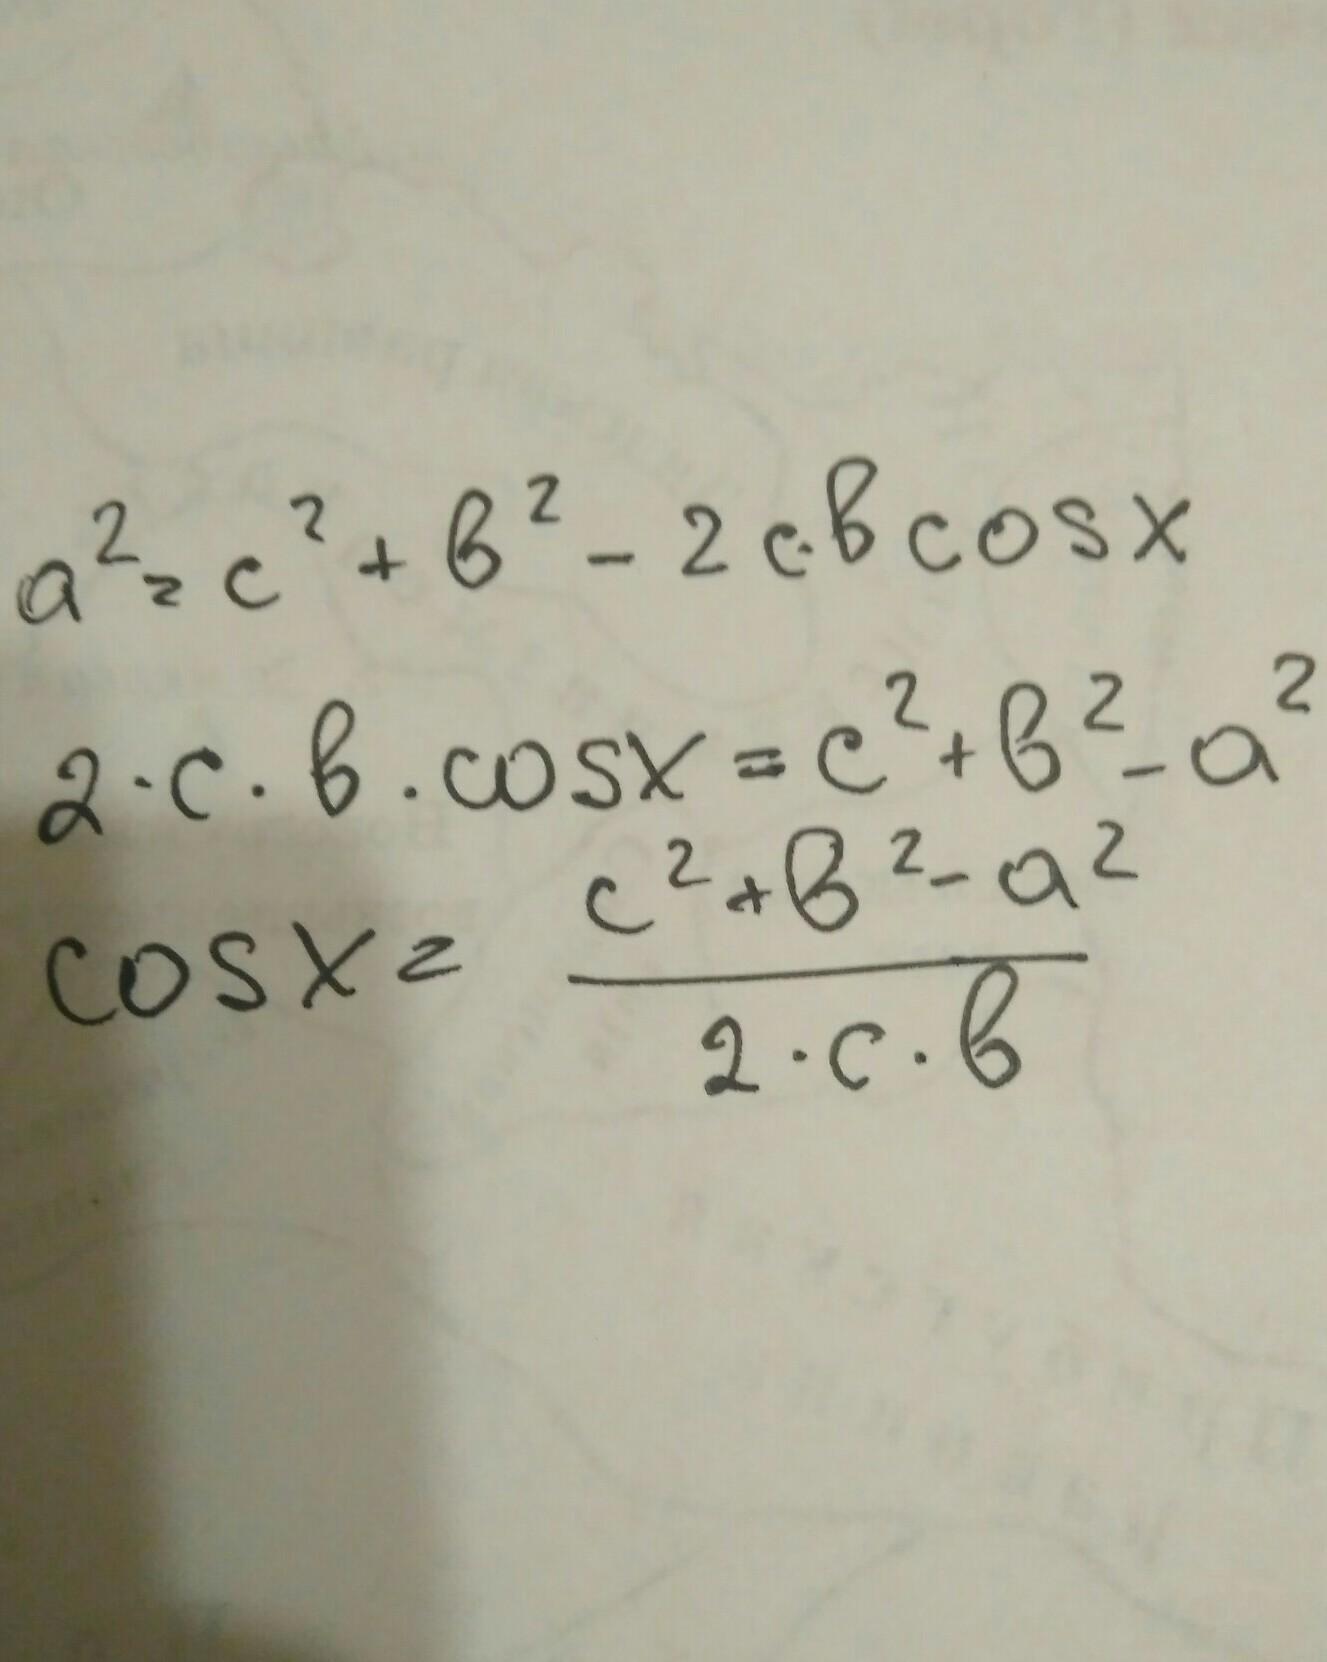 a² = c² + в² - 2c·в cosx
2·c·в·cosx = c² + в² - a²
cosx = (c² + в² - a²) / (2·c·в)